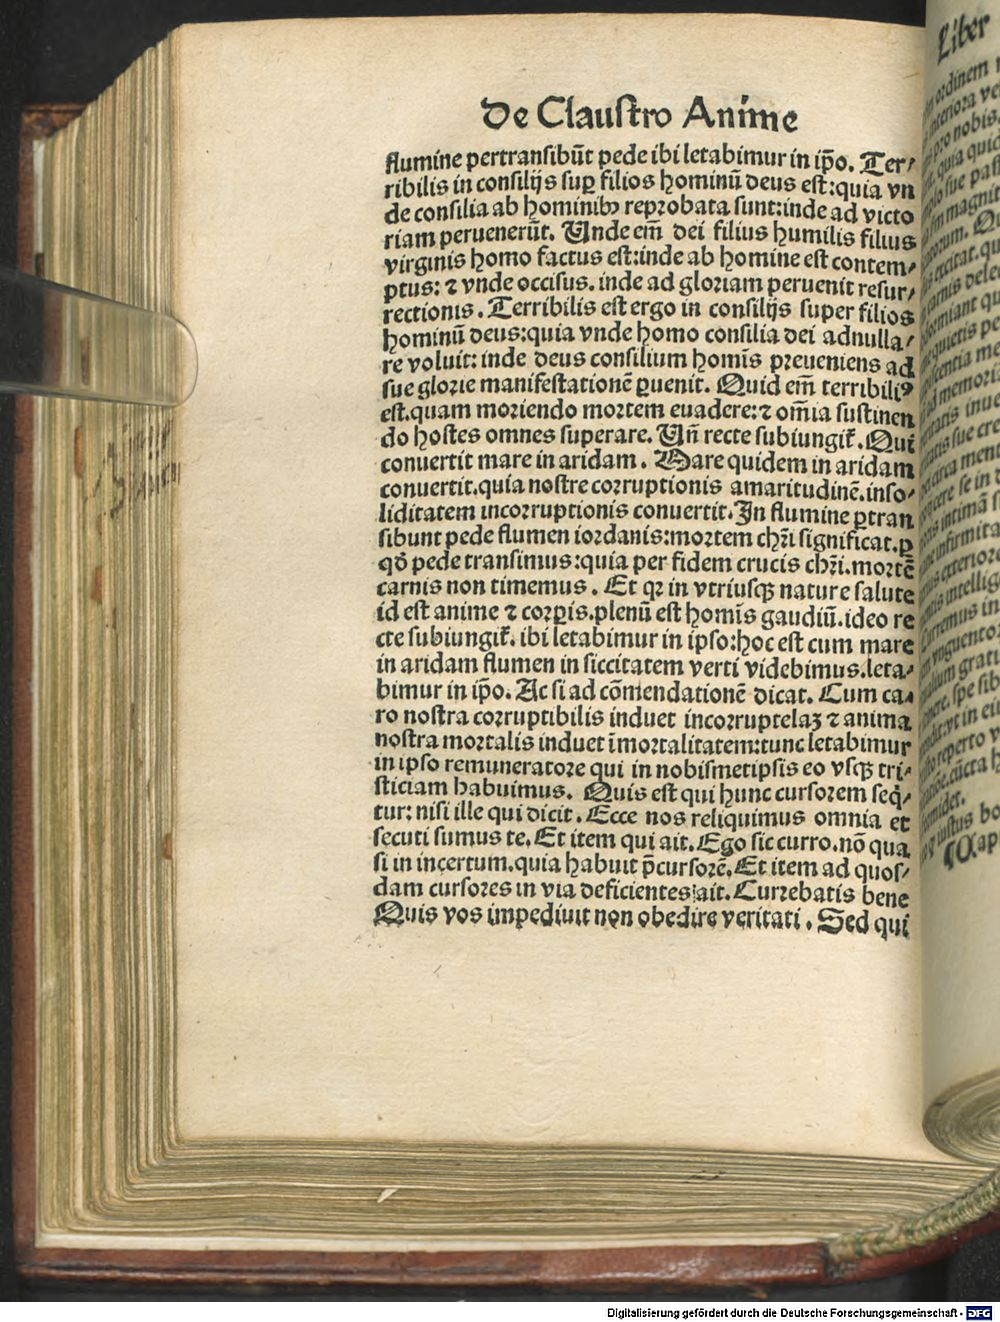 De Claustro Anime
flumine pertransibūt pede ibi letabimur in ip̄o. Ter⸗
ribilis in consilijs suꝑ filios hominū deus est:quia vn
de consilia ab hominibꝫ reprobata sunt:inde ad victo
riam peruenerūt. Unde em̄ dei filius humilis filius
virginis homo factus est:inde ab homine est contem⸗
ptus: ⁊ vnde occisus. inde ad gloriam peruenit resur⸗
rectionis. Terribilis est ergo in consilijs super filios
hominū deus:quia vnde homo consilia dei adnulla⸗
re voluit: inde deus consilium homīs preueniens ad
sue glorie manifestationē ꝑuenit. Quid em̄ terribiliꝰ
est.quam moriendo mortem euadere:⁊ om̄ia sustinen
do hostes omnes superare. Uñ recte subiungit̄. Qui
conuertit mare in aridam. Mare quidem in aridam
conuertit.quia nostre corruptionis amaritudinē.inso⸗
liditatem incorruptionis conuertit.In flumine ꝑtran
sibunt pede flumen iordanis:mortem chr̄i significat.ꝑ
qō pede transimus:quia per fidem crucis chr̄i.mortē
carnis non timemus. Et qꝛ in vtriusqꝫ nature salute
id est anime ⁊ corꝑis.plenū est homīs gaudiū.ideo re
cte subiungit̄. ibi letabimur in ipso:hoc est cum mare
in aridam flumen in siccitatem verti videbimus.leta⸗
bimur in ip̄o. Ac si ad cōmendationē dicat. Cum ca⸗
ro nostra corruptibilis induet incorruptelaꝫ ⁊ anima
nostra mortalis induet īmortalitatem:tunc letabimur
in ipso remuneratore qui in nobismetipsis eo vsqꝫ tri⸗
sticiam habuimus. Quis est qui hunc cursorem seq̄⸗
tur: nisi ille qui dicit. Ecce nos reliquimus omnia et
secuti sumus te. Et item qui ait. Ego sic curro.nō qua
si in incertum.quia habuit p̄cursorē. Et item ad quos⸗
dam cursores in via deficientes ait. Currebatis bene
Quis vos impediuit non obedire veritati. Sed qui
Liber
ordinem
pro nobis
quia quid
sue pas
magnit
excitat.qu
carnis delec
memoria
sue cre
circa ment
se in
intimā
infirmita
exteriora
intellig
in
vnguento
grati
spe sib
vt in eu
reperto
cūcta
iustus bo
¶Cap
Digitalisierung gefördert durch die Deutsche Forschungsgemeinschaft - DFG